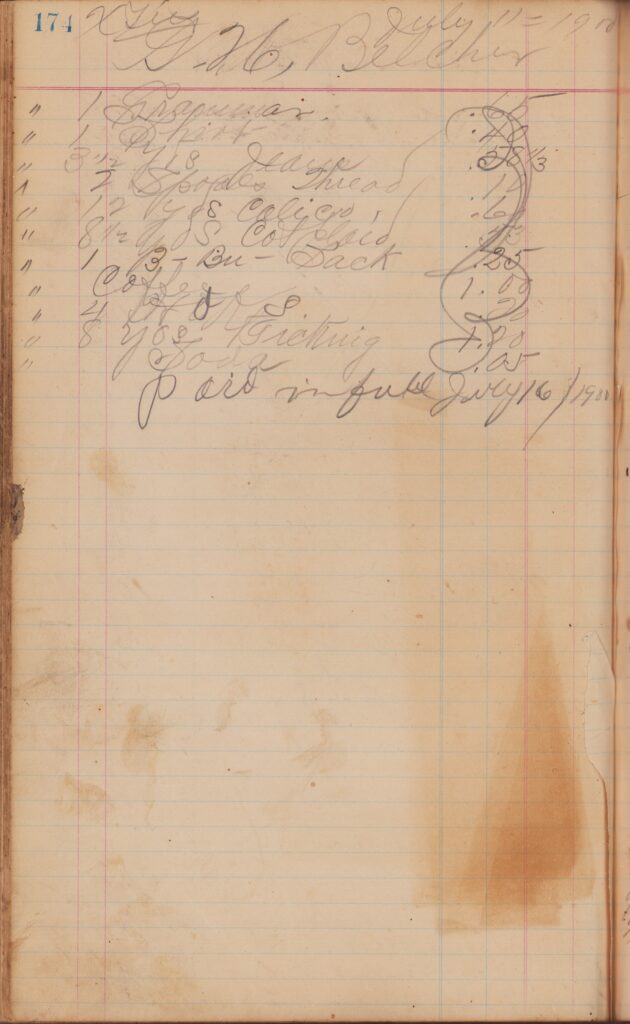 174 July 11 = 1900
G. H. Belcher
" 1 Grammar. .65
" 1 Shirt .40
" 3 1/2 yds Jeans .58 1/3
" 2 Spools Thread .10
" 12 yds Calico .60
" 8 1/2 yds Cot Plaid
" 1 B - Bu - Sack .25
" Coffee 1.00
" 4 .20
" 8 yds Ticking 1.20
" Soda .05
paid in full July 16 / 1900